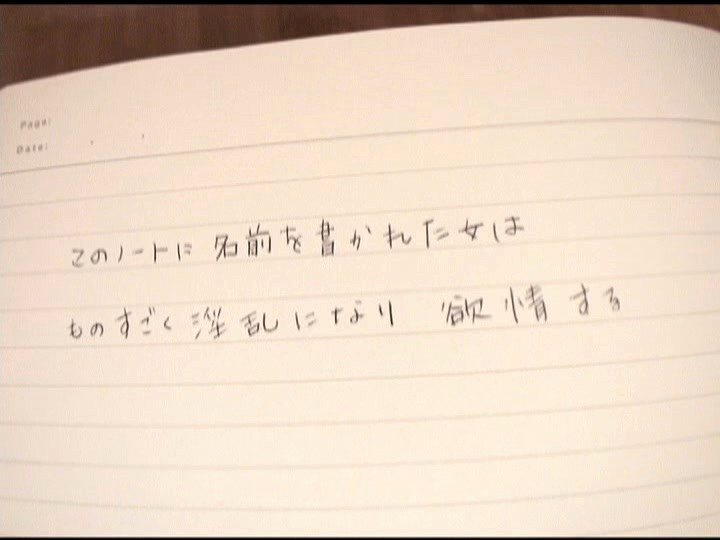 Page:
Date:
このノートに名前を書かれた女は
ものすごく淫乱になり 欲情する